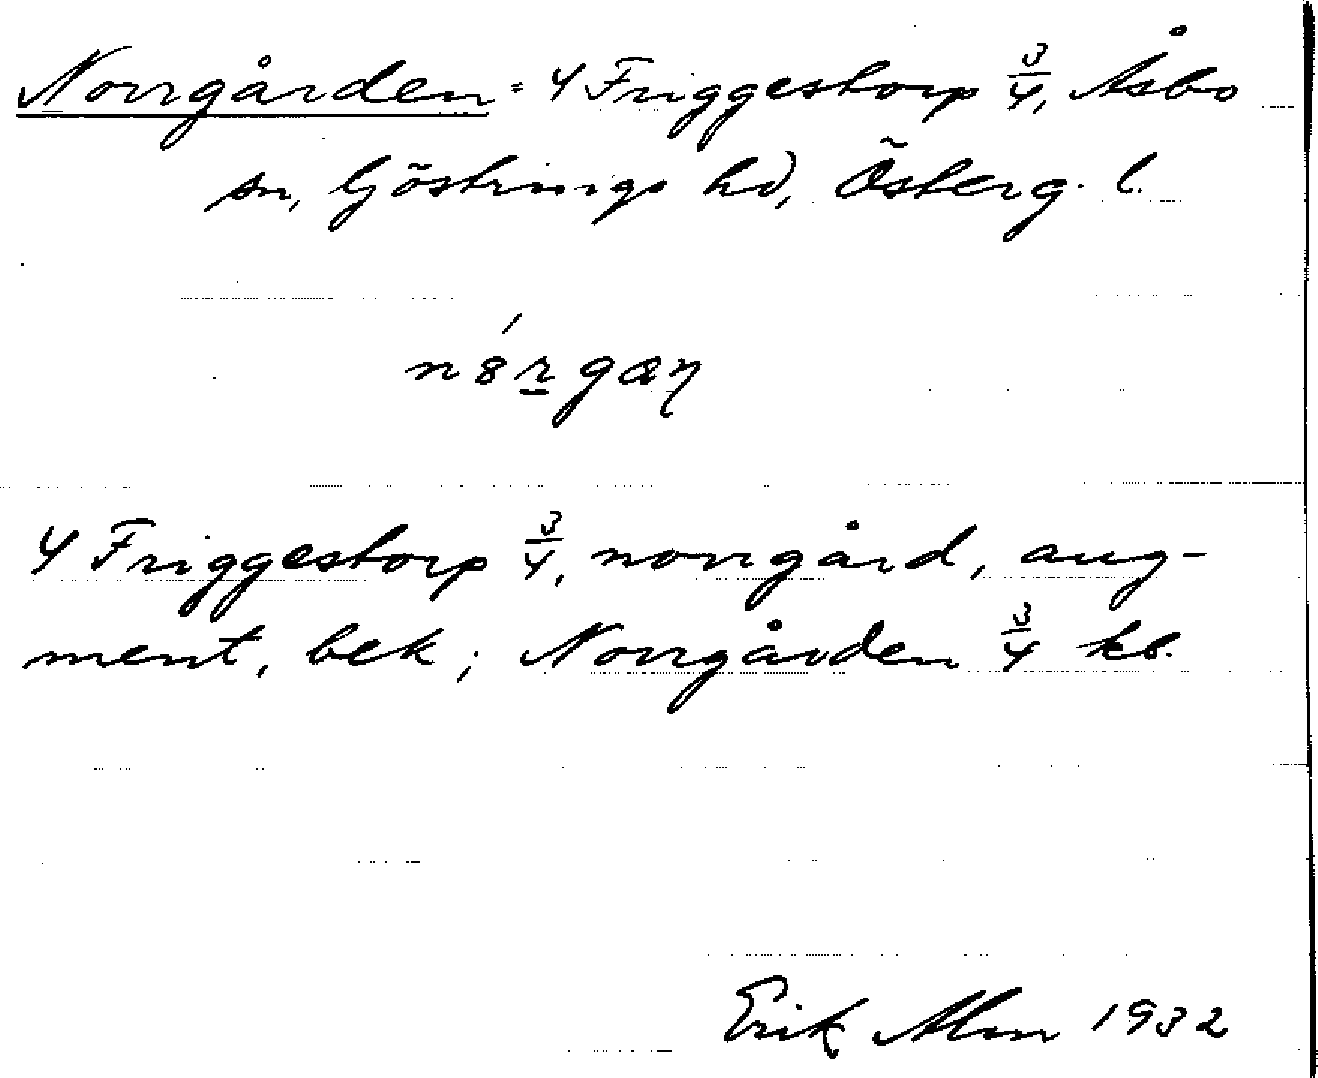 Norrgården = 4 Friggestorp 3/4, Åsbo
sn, Göstrings hd, Österg. l.
n8́r̲gaꞃ
4 Friggestorp 3/4, norrgård, aug-
ment, bek; Norrgården 3/4 kb.
Erik Alm 1932